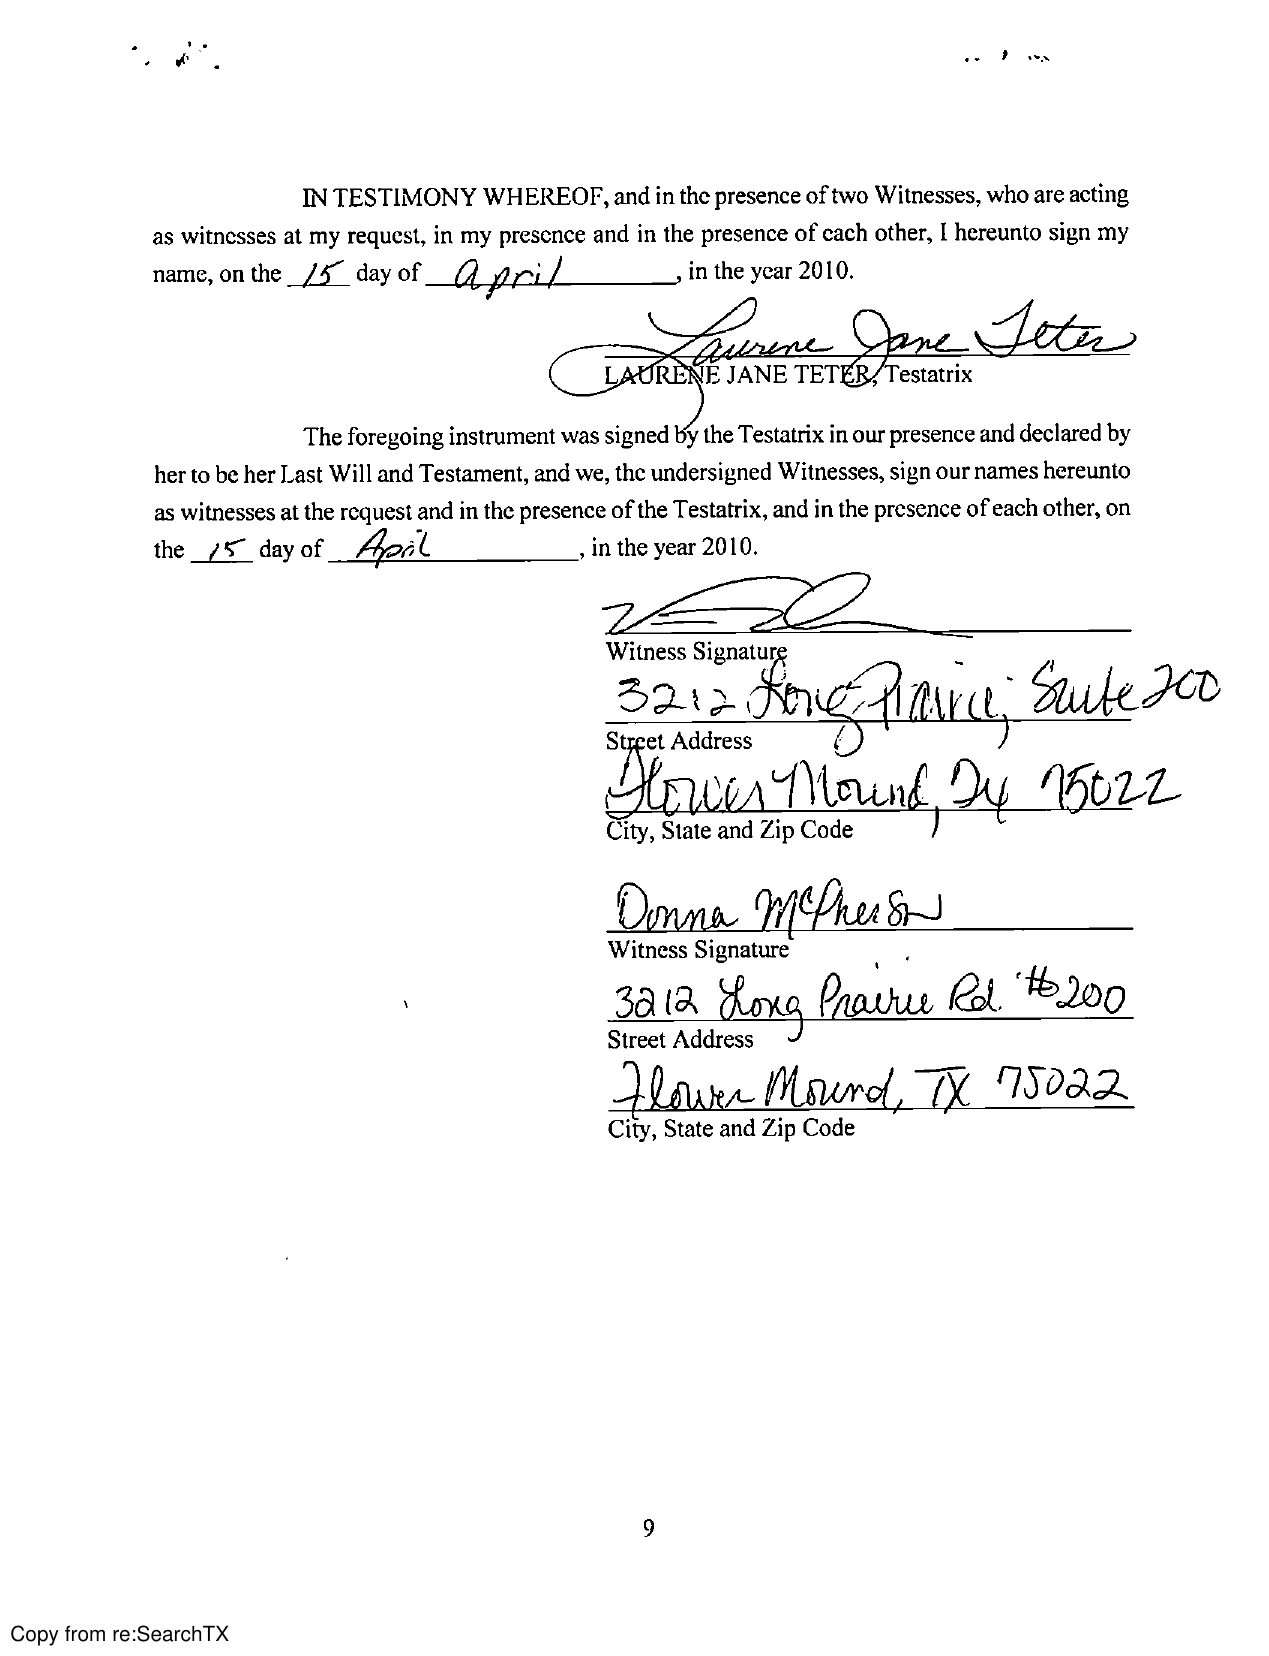 IN TESTIMONY WHEREOF, and in the presence of two Witnesses, who are acting
as witnesses at my request, in my presence and in the presence of each other, I hereunto sign my
name, on the 15 day of April, in the year 2010.
Laurene Jane Teter
LAURENE JANE TETER, Testatrix
The foregoing instrument was signed by the Testatrix in our presence and declared by
her to be her Last Will and Testament, and we, the undersigned Witnesses, sign our names hereunto
as witnesses at the request and in the presence of the Testatrix, and in the presence of each other, on
the 15 day of April, in the year 2010.
Witness Signature
3212 Long Prairie, Suite 200
Street Address
Flower Mound, Tx 75022
City, State and Zip Code
Donna McPherson
Witness Signature
3212 Long Prairie Rd. #200
Street Address
Flower Mound, TX 75022
City, State and Zip Code
9
Copy from re:SearchTX